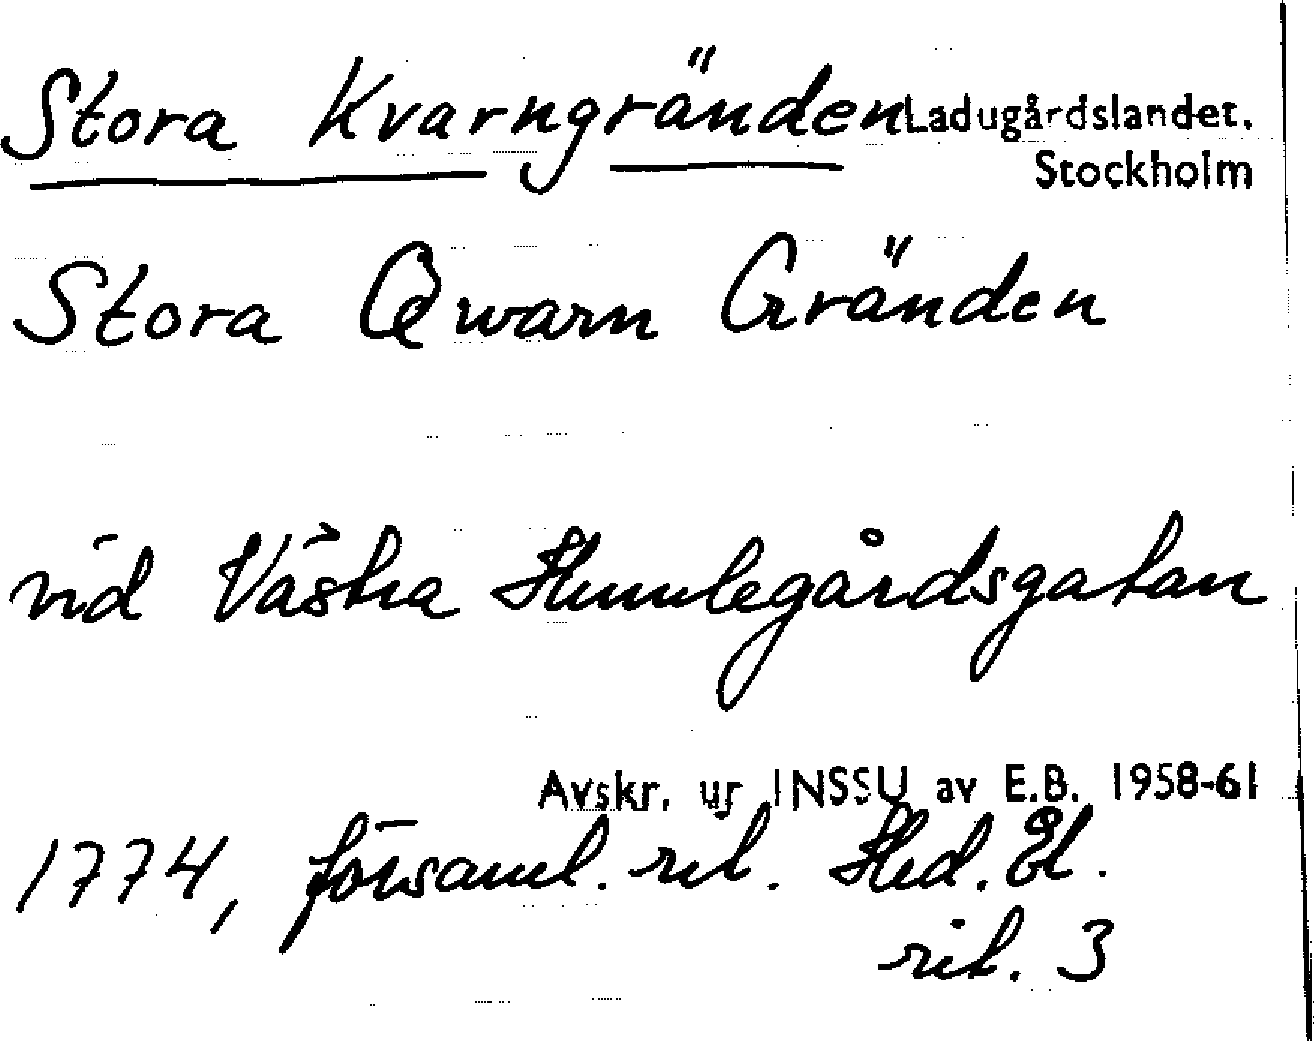 Stora Kvarngränden Ladugårdslandet.
Stockholm
Stora Qwarn Gränden
vid Västra Humlegårdsgatan
Avskr. ur INSSU av E.B. 1958-61
1774, församl. rit. Hed. El.
rit. 3